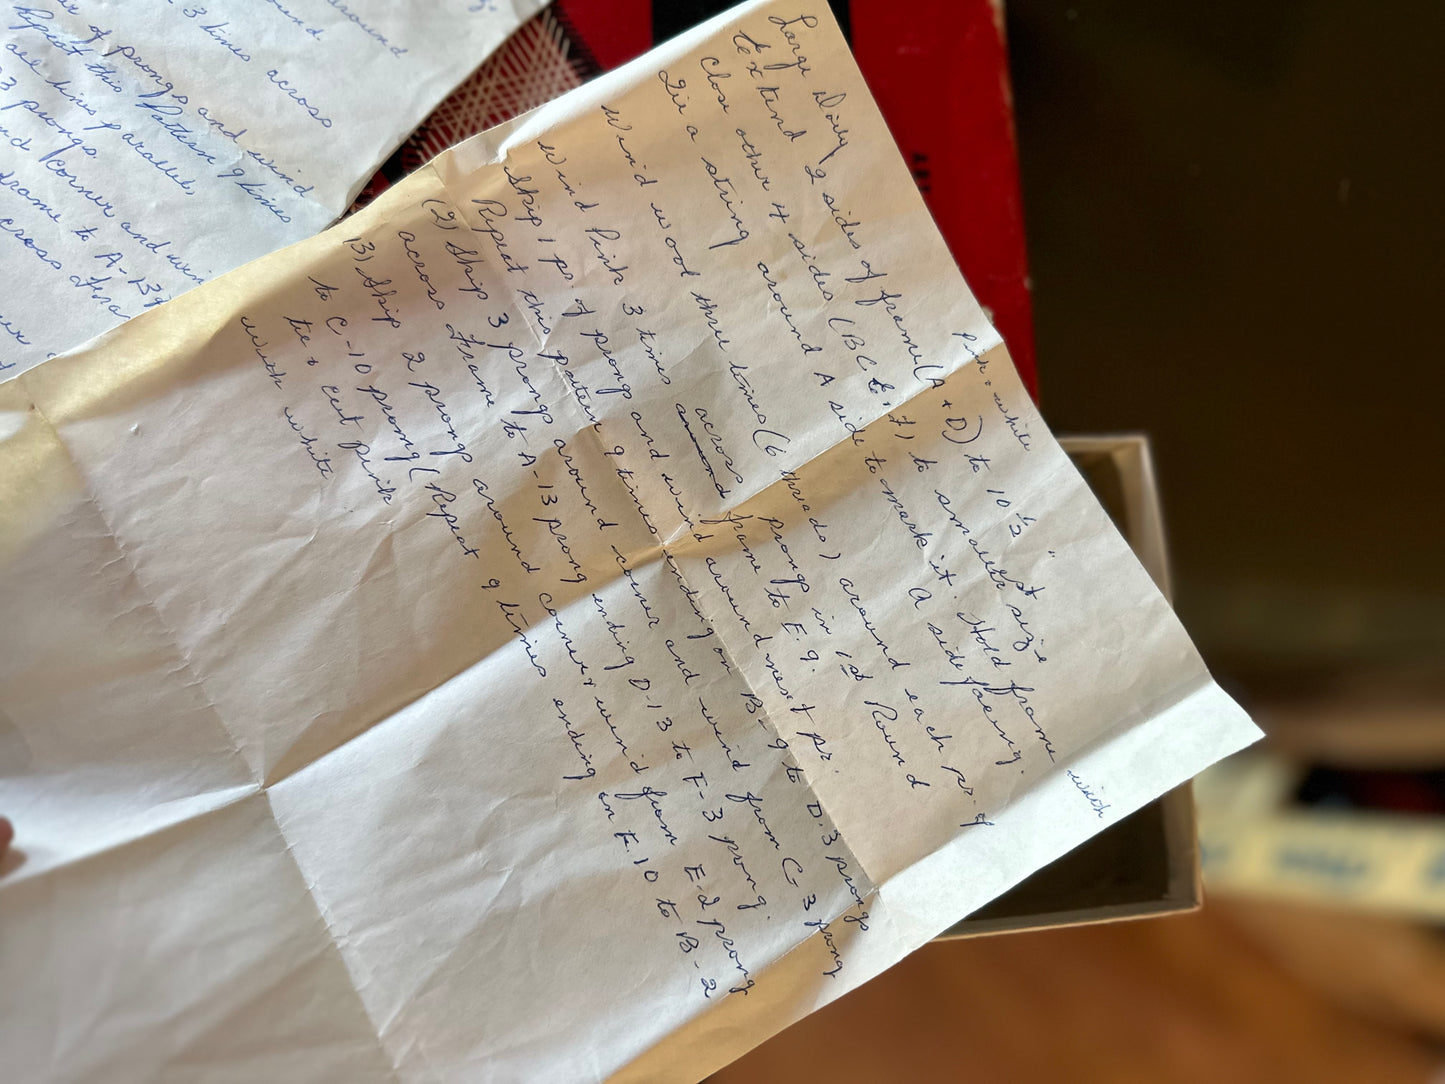 Pink + white
Large Doily
Extend 2 sides of frame (A + D) to 10 1/2"
Close other 4 sides (BCE + F) to smallest size
Tie a string around A side to mark it. Hold frame with
A side facing.
Wind wool three times (6 threads) around each pr. of
prongs in 1st Round
Wind Pink 3 times across around frame to E. 9.
Wind
Skip 1 pr. of prongs and wind around next pr.
Repeat this pattern 9 times ending on B-9 to D.3 prongs
(2) Skip 3 prongs around corner and wind from C-3 prong
across frame to A-13 prong ending D-13 to F-3 prong.
(3) Skip 2 prongs around corner & wind from E-2 prong
to C-10 prong (Repeat 9 times ending on F.10 to B-2
tie & cut pink
with white
around
3 times across
of prongs and wind
Repeat this Pattern 9 times
all lines parallel
3 prongs.
corner and
frame to A-13
cross